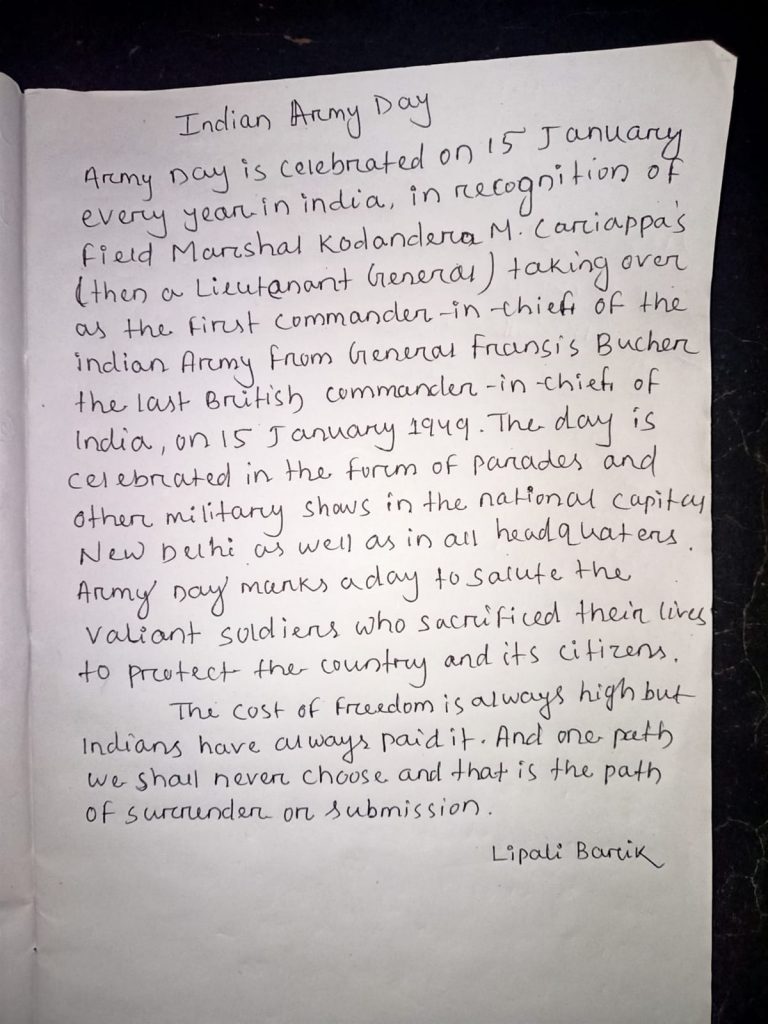 Indian Army Day
Army Day is celebrated on 15 January
every year in india, in recognition of
Field Marshal Kodandera M. Cariappa's
(then a Lieutanant General) taking over
as the first commander-in-chief of the
indian Army from General Fransis Bucher
the last British commander-in-chief of
India, on 15 January 1949. The day is
celebrated in the form of parades and
other military shows in the national capital
New Delhi as well as in all headquaters.
Army Day marks a day to salute the
valiant soldiers who sacrificed their lives
to protect the country and its citizens.
The cost of freedom is always high but
Indians have always paid it. And one path
we shall never choose and that is the path
of surrender or submission.
Lipali Barik